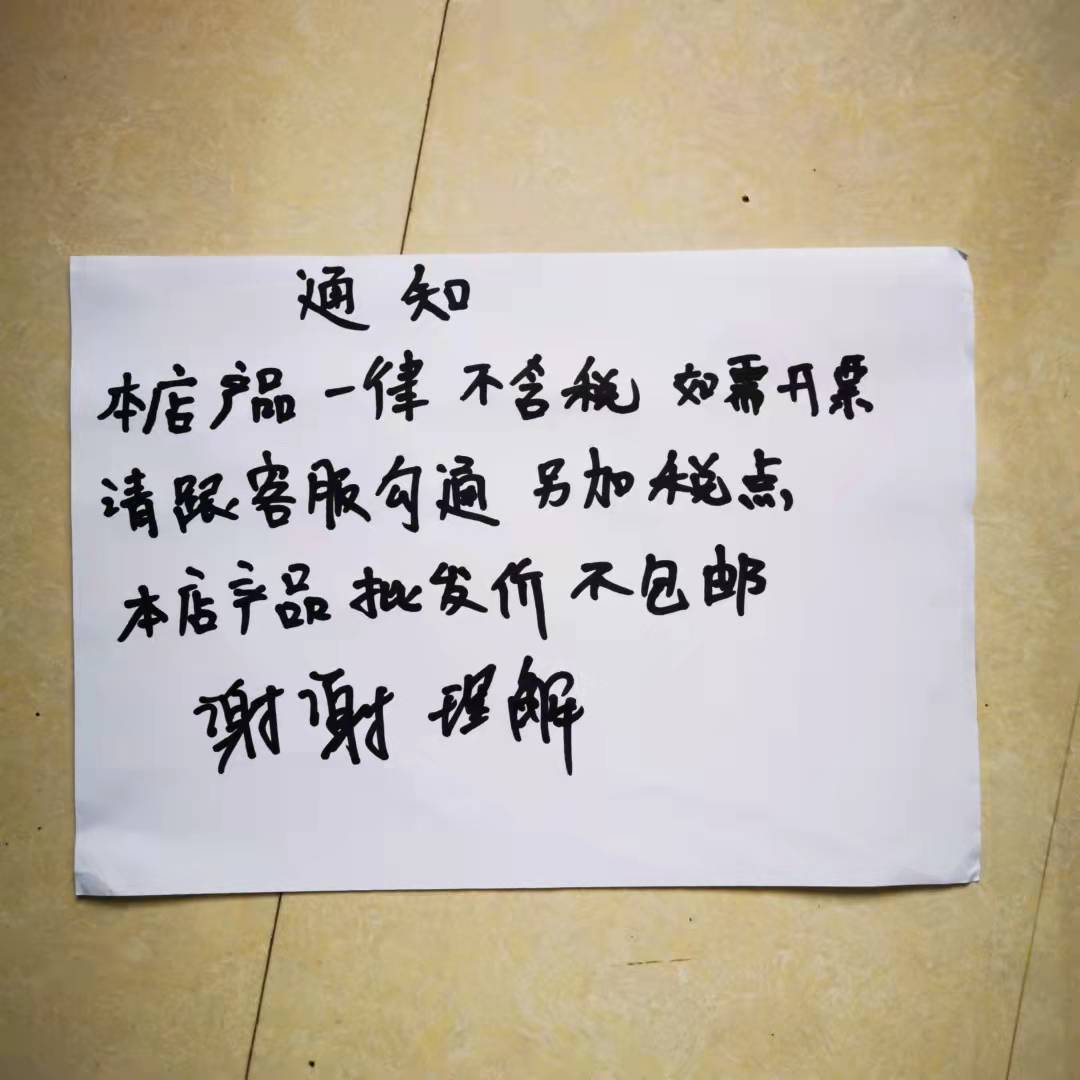 通知
本店产品一律不含税如需开票
清跟客服勾通另加税点
本店产品批发价不包邮
谢谢理解